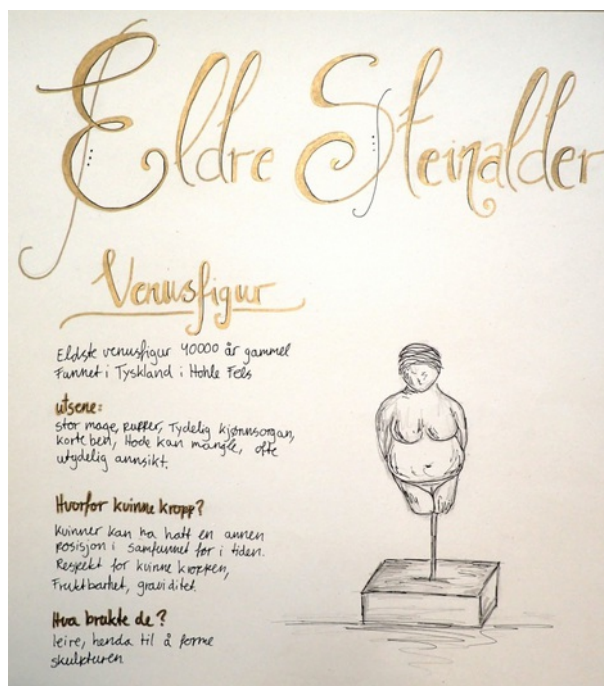 Eldre Steinalder
Venusfigur
Eldste venusfigur 40000 år gammel
Funnet i Tyskland i Hohle Fels
utsene:
stor mage, pupper, Tydelig kjønnsorgan,
korte ben, Hode kan mangle, ofte
utydelig annsikt.
Hvorfor kvinne kropp?
Kvinner kan ha hatt en annen
posisjon i samfunnet før i tiden.
Respekt for kvinne kroppen,
Fruktbarhet, graviditet.
Hva brukte de?
leire, henda til å forme
skulpturen